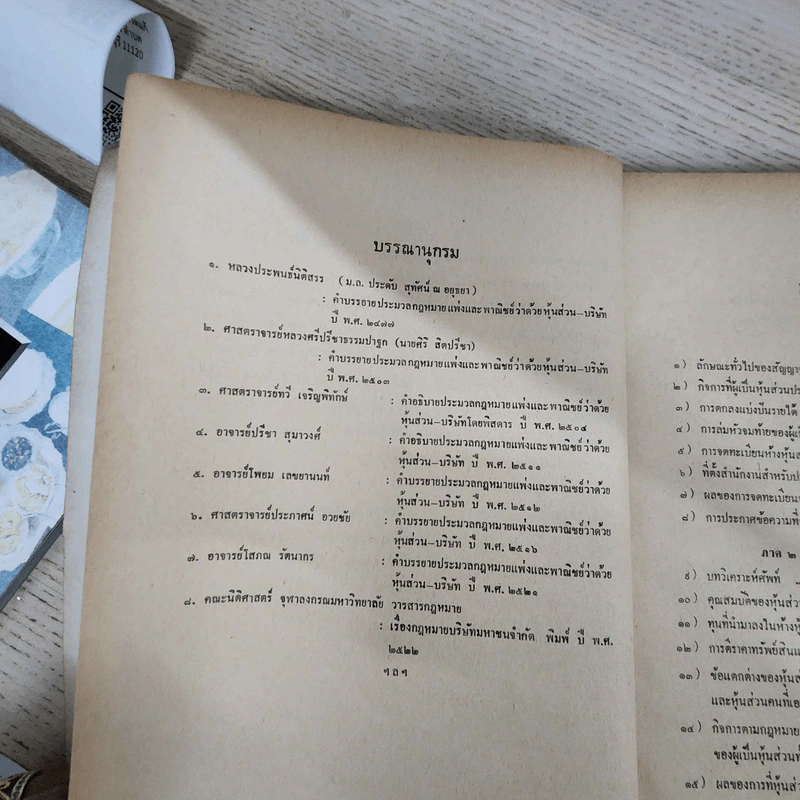 บรรณานุกรม
๑. หลวงประพนธ์นิติสรร (ม.ล. ประดับ สุทัศน์ ณ อยุธยา)
: คำบรรยายประมวลกฎหมายแพ่งและพาณิชย์ว่าด้วยหุ้นส่วน–บริษัท
ปี พ.ศ. ๒๔๗๗
๒. ศาสตราจารย์หลวงศรีปรีชาธรรมปาฐก (นายศิริ สิตปรีชา)
: คำบรรยายประมวลกฎหมายแพ่งและพาณิชย์ว่าด้วยหุ้นส่วน–บริษัท
ปี พ.ศ. ๒๕๐๓
๓. ศาสตราจารย์ทวี เจริญพิทักษ์ : คำอธิบายประมวลกฎหมายแพ่งและพาณิชย์ ว่าด้วย
หุ้นส่วน–บริษัทโดยพิสดาร ปี พ.ศ. ๒๕๐๔
๔. อาจารย์ปรีชา สุมาวงศ์ : คำอธิบายประมวลกฎหมายแพ่งและพาณิชย์ ว่าด้วย
หุ้นส่วน–บริษัท ปี พ.ศ. ๒๕๑๑
๕. อาจารย์โพยม เลขยานนท์ : คำบรรยายประมวลกฎหมายแพ่งและพาณิชย์ว่าด้วย
หุ้นส่วน–บริษัท ปี พ.ศ. ๒๕๑๒
๖. ศาสตราจารย์ประภาศน์ อวยชัย : คำบรรยายประมวลกฎหมายแพ่งและพาณิชย์ว่าด้วย
หุ้นส่วน–บริษัท ปี พ.ศ. ๒๕๑๖
๗. อาจารย์โสภณ รัตนากร : คำบรรยายประมวลกฎหมายแพ่งและพาณิชย์ว่าด้วย
หุ้นส่วน–บริษัท ปี พ.ศ. ๒๕๒๑
๘. คณะนิติศาสตร์ จุฬาลงกรณมหาวิทยาลัย วารสารกฎหมาย
: เรื่องกฎหมายบริษัทมหาชนจำกัด พิมพ์ ปี พ.ศ.
๒๕๒๒
ฯลฯ
๑) ลักษณะทั่วไปของสัญญา
๒) กิจการที่ผู้เป็นหุ้นส่วน
๓) การตกลงแบ่งปันรายได้
๔) การล่มหัวจมท้ายของผู้
๕) การจดทะเบียนห้างหุ้น
๖) ที่ตั้งสำนักงานสำหรับ
๗) ผลของการจดทะเบียน
๘) การประกาศข้อความที่
ภาค ๒
๙) บทวิเคราะห์ศัพท์
๑๐) คุณสมบัติของหุ้นส่วน
๑๑) ทุนที่นำมาลงในห้างหุ้
๑๒) การตีราคาทรัพย์สิน
๑๓) ข้อแตกต่างของหุ้นส่
และหุ้นส่วนคนที่
๑๔) กิจการตามกฎหมาย
ของผู้เป็นหุ้นส่วน
๑๕) ผลของการที่หุ้นส่ว
11120